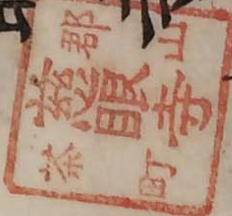 郡山
慈眼寺
茶町